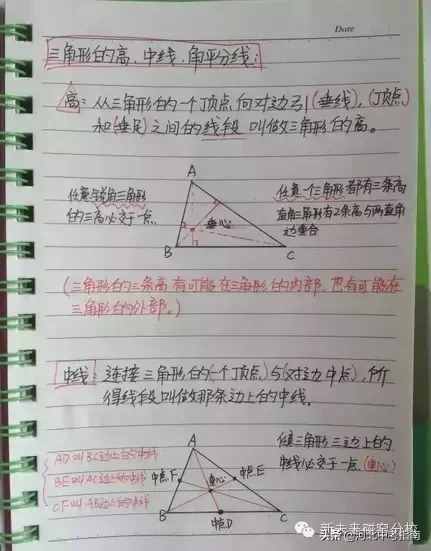 Date
三角形的高、中线、角平分线:
高:从三角形的一个顶点向对边引(垂线),(顶点)
和(垂足)之间的线段叫做三角形的高。
A
任意锐角三角形
的三高必交于一点
任意一个三角形都有三条高
直角三角形有2条高与两直角
边重合
垂心
B
C
(三角形的三条高有可能在三角形的内部,也有可能在
三角形的外部。)
中线:连接三角形的(一个顶点)与(对边中点),所
得线段叫做那条边上的中线。
A
任意三角形三边上的
中线必交于一点(重心)
AD叫BC边上的中线
BE叫AC边上的中线
CF叫AB边上的中线
中点F
中点E
重心
B
中点D
C
新未来研究分校
头条@河北中考指南